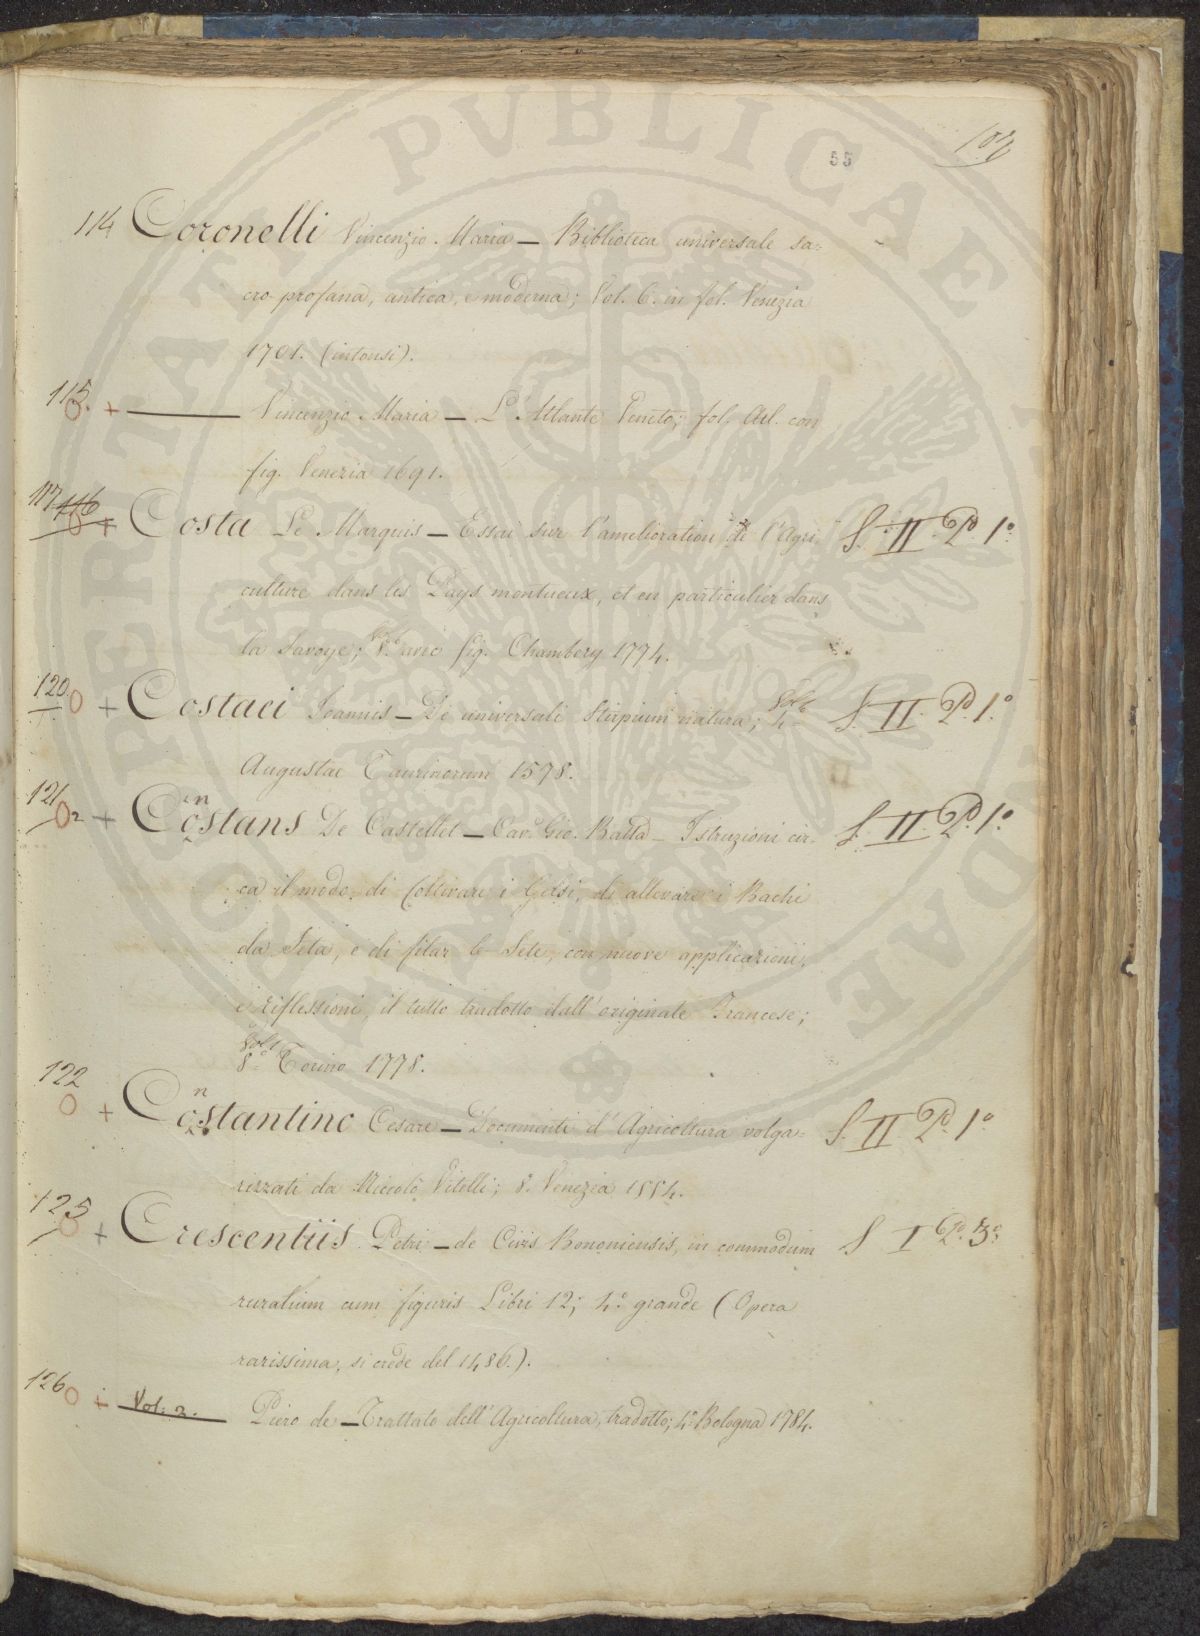 55
114 Coronelli Vincenzio Maria — Biblioteca universale sa=
cro-profana, antica, e moderna; Vol. 6. in fol. Venezia
1701. (intonsi).
115. O + —— Vincenzio Maria — L'Atlante Veneto; fol. Atl. con
fig. Venezia 1691.
117 116 O + Costa Le Marquis — Essai sur l'amelioration de l'Agri- S. II. Pº. 1º.
culture dans les Pays montueux, et en particulier dans
la Savoye; 8.º avec fig. Chambery 1774.
120. O + Costaei Joannis — De universali stirpium natura; 4º S. II. Pº. 1º.
Augustae Taurinorum 1578.
121 O 2 + Costans De Castellet — Cav.º Gio. Batta — Istruzioni cir- S. II. Pº. 1º.
ca il modo di Coltivare i Gelsi, di allevare i Bachi
da Seta, e di filar le Sete, con nuove applicazioni,
e riflessioni, il tutto tradotto dall'originale Francese;
8º Torino 1778.
122 O + Costantino Cesare — Documenti d'Agricoltura volga= S. II. Pº. 1º
rizzati da Niccolò Vitelli; 8. Venezia 1554.
125 O + Crescentiis Petri — de Civis Bononiensis, in commodum S I Pº. 3º.
ruralium cum figuris Libri 12; 4º. grande (Opera
rarissima, si crede del 1486.).
126 O + Vol. 2. Piero de — Trattato dell'Agricoltura, tradotto; 4º Bologna 1784.